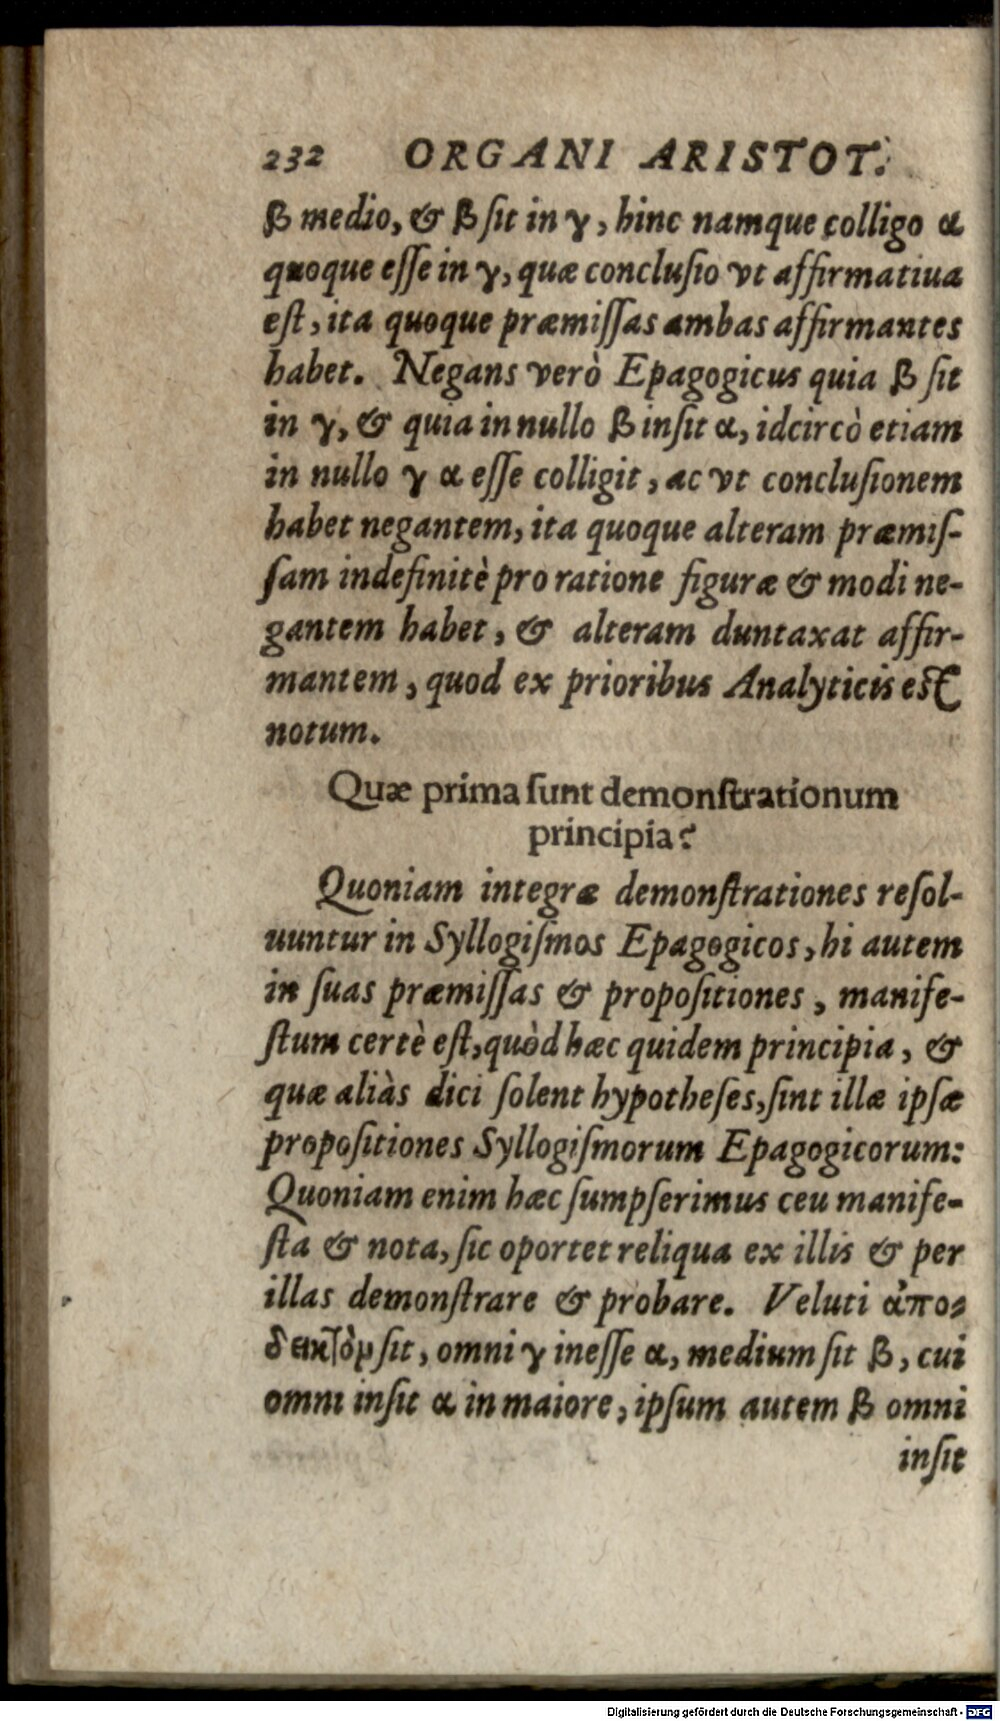 232 ORGANI ARISTOT.
β medio, & β ſit in γ, hinc namque colligo α
quoque eſſe in γ, quæ concluſio vt affirmatiua
eſt, ita quoque præmiſſas ambas affirmantes
habet. Negans verò Epagogicus quia β ſit
in γ, & quia in nullo β inſit α, idcircò etiam
in nullo γ α eſſe colligit, ac vt concluſionem
habet negantem, ita quoque alteram præmiſ-
ſam indefinitè pro ratione figuræ & modi ne-
gantem habet, & alteram duntaxat affir-
mantem, quod ex prioribus Analyticis eſt
notum.
Quæ prima ſunt demonſtrationum
principia?
Quoniam integræ demonſtrationes reſol-
uuntur in Syllogiſmos Epagogicos, hi autem
in ſuas præmiſſas & propoſitiones, manife-
ſtum certè eſt, quòd hæc quidem principia, &
quæ aliàs dici ſolent hypotheſes, ſint illæ ipſæ
propoſitiones Syllogiſmorum Epagogicorum:
Quoniam enim hæc ſumpſerimus ceu manife-
ſta & nota, ſic oportet reliqua ex illis & per
illas demonſtrare & probare. Veluti ἀπο-
δεικτὸν ſit, omni γ ineſſe α, medium ſit β, cui
omni inſit α in maiore, ipſum autem β omni
inſit
Digitalisierung gefördert durch die Deutsche Forschungsgemeinschaft - DFG